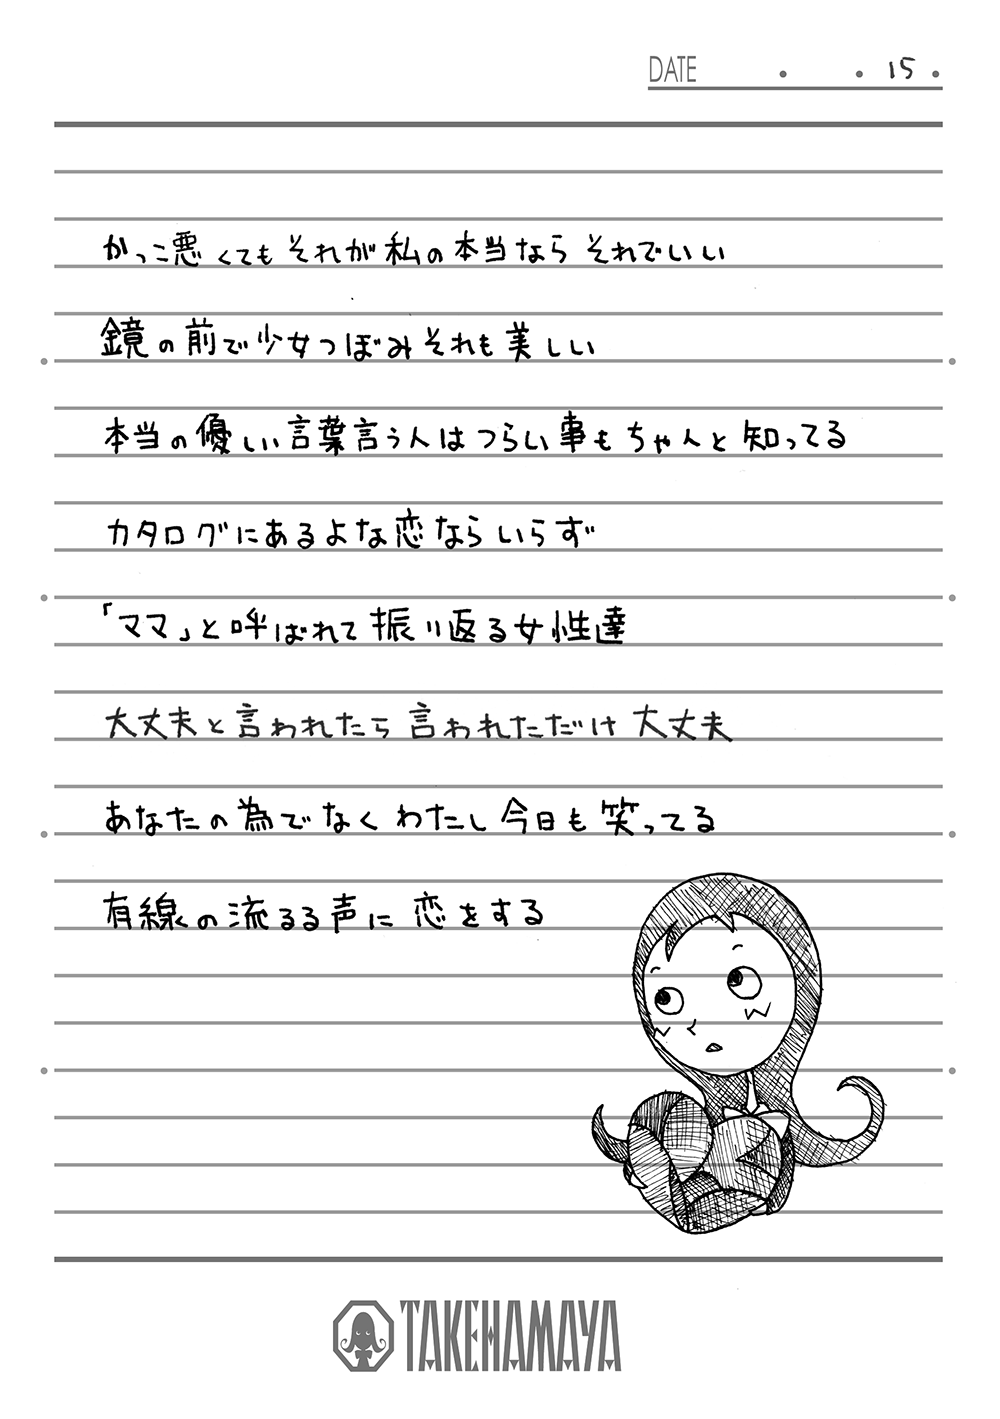 DATE ・ ・ 15 ・
かっこ悪くても それが私の本当なら それでいい
鏡の前で少女つぼみそれも美しい
本当の優しい言葉言う人はつらい事もちゃんと知ってる
カタログにあるよな恋ならいらず
「ママ」と呼ばれて振り返る女性達
大丈夫と言われたら 言われただけ 大丈夫
あなたの為でなく わたし今日も笑ってる
有線の流るる声に 恋をする
TAKEHAMAYA